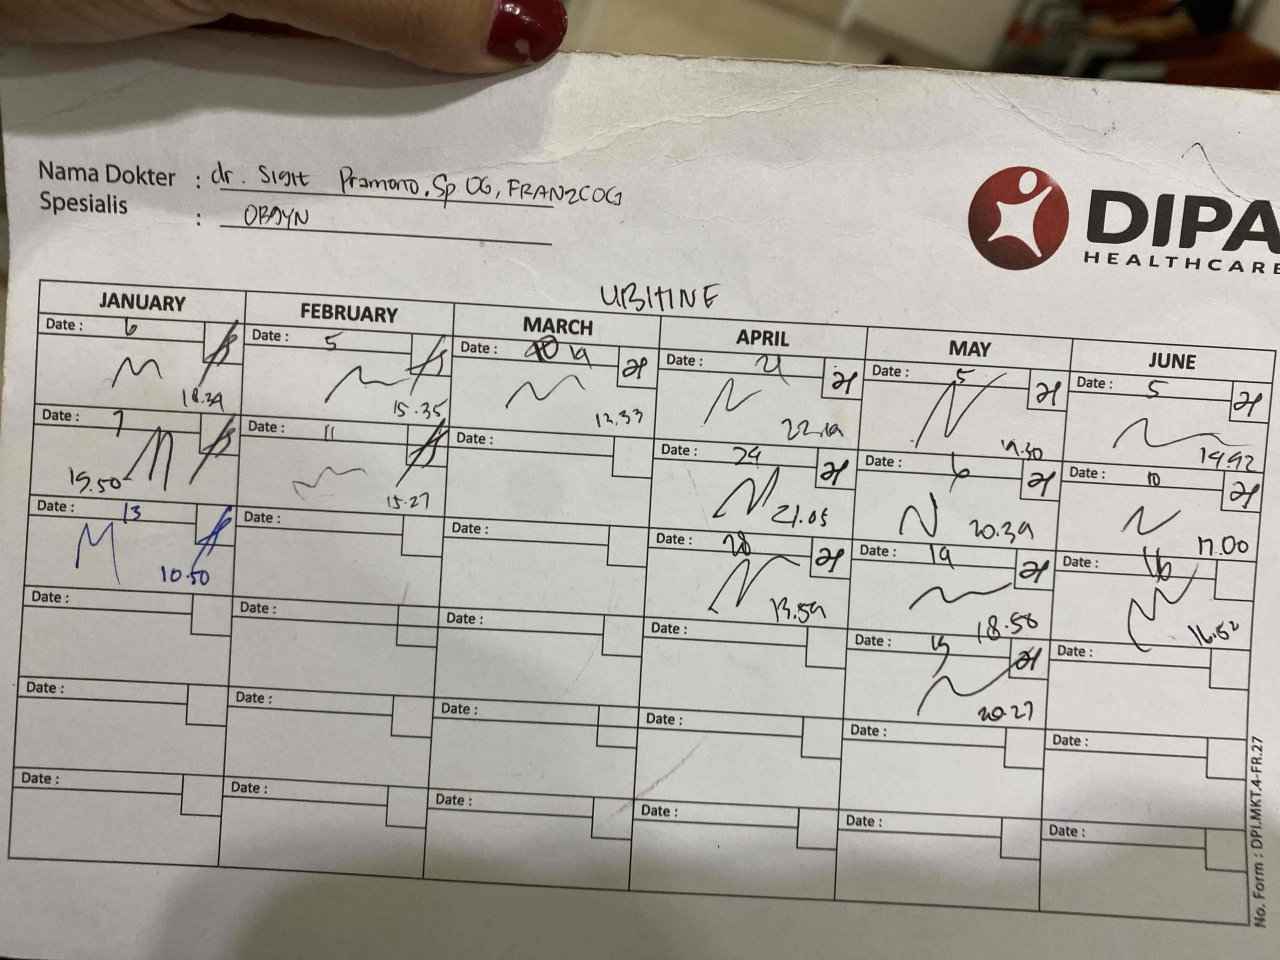 Nama Dokter : dr. Sigit Pramono, Sp OG, FRANZCOG
Spesialis : OBGYN
DIPA
HEALTHCARE
UBITINE
JANUARY FEBRUARY MARCH APRIL MAY JUNE
Date : 6 Date : 5 Date : 19 Date : 21 Date : 5 Date : 5
18.39 15.35 12.33 22.19 19.30 19.92
Date : 7 Date : 11 Date : Date : 29 Date : 6 Date : 10
15.50 15.27 21.05 20.39 17.00
Date : 13 Date : Date : Date : 28 Date : 19 Date : 16
10.50 13.59 18.58 16.52
Date : Date : Date : Date : Date : Date :
20.27
Date : Date : Date : Date : Date : Date :
Date : Date : Date : Date : Date : Date :
No. Form : DPI.MKT.4-FR.27